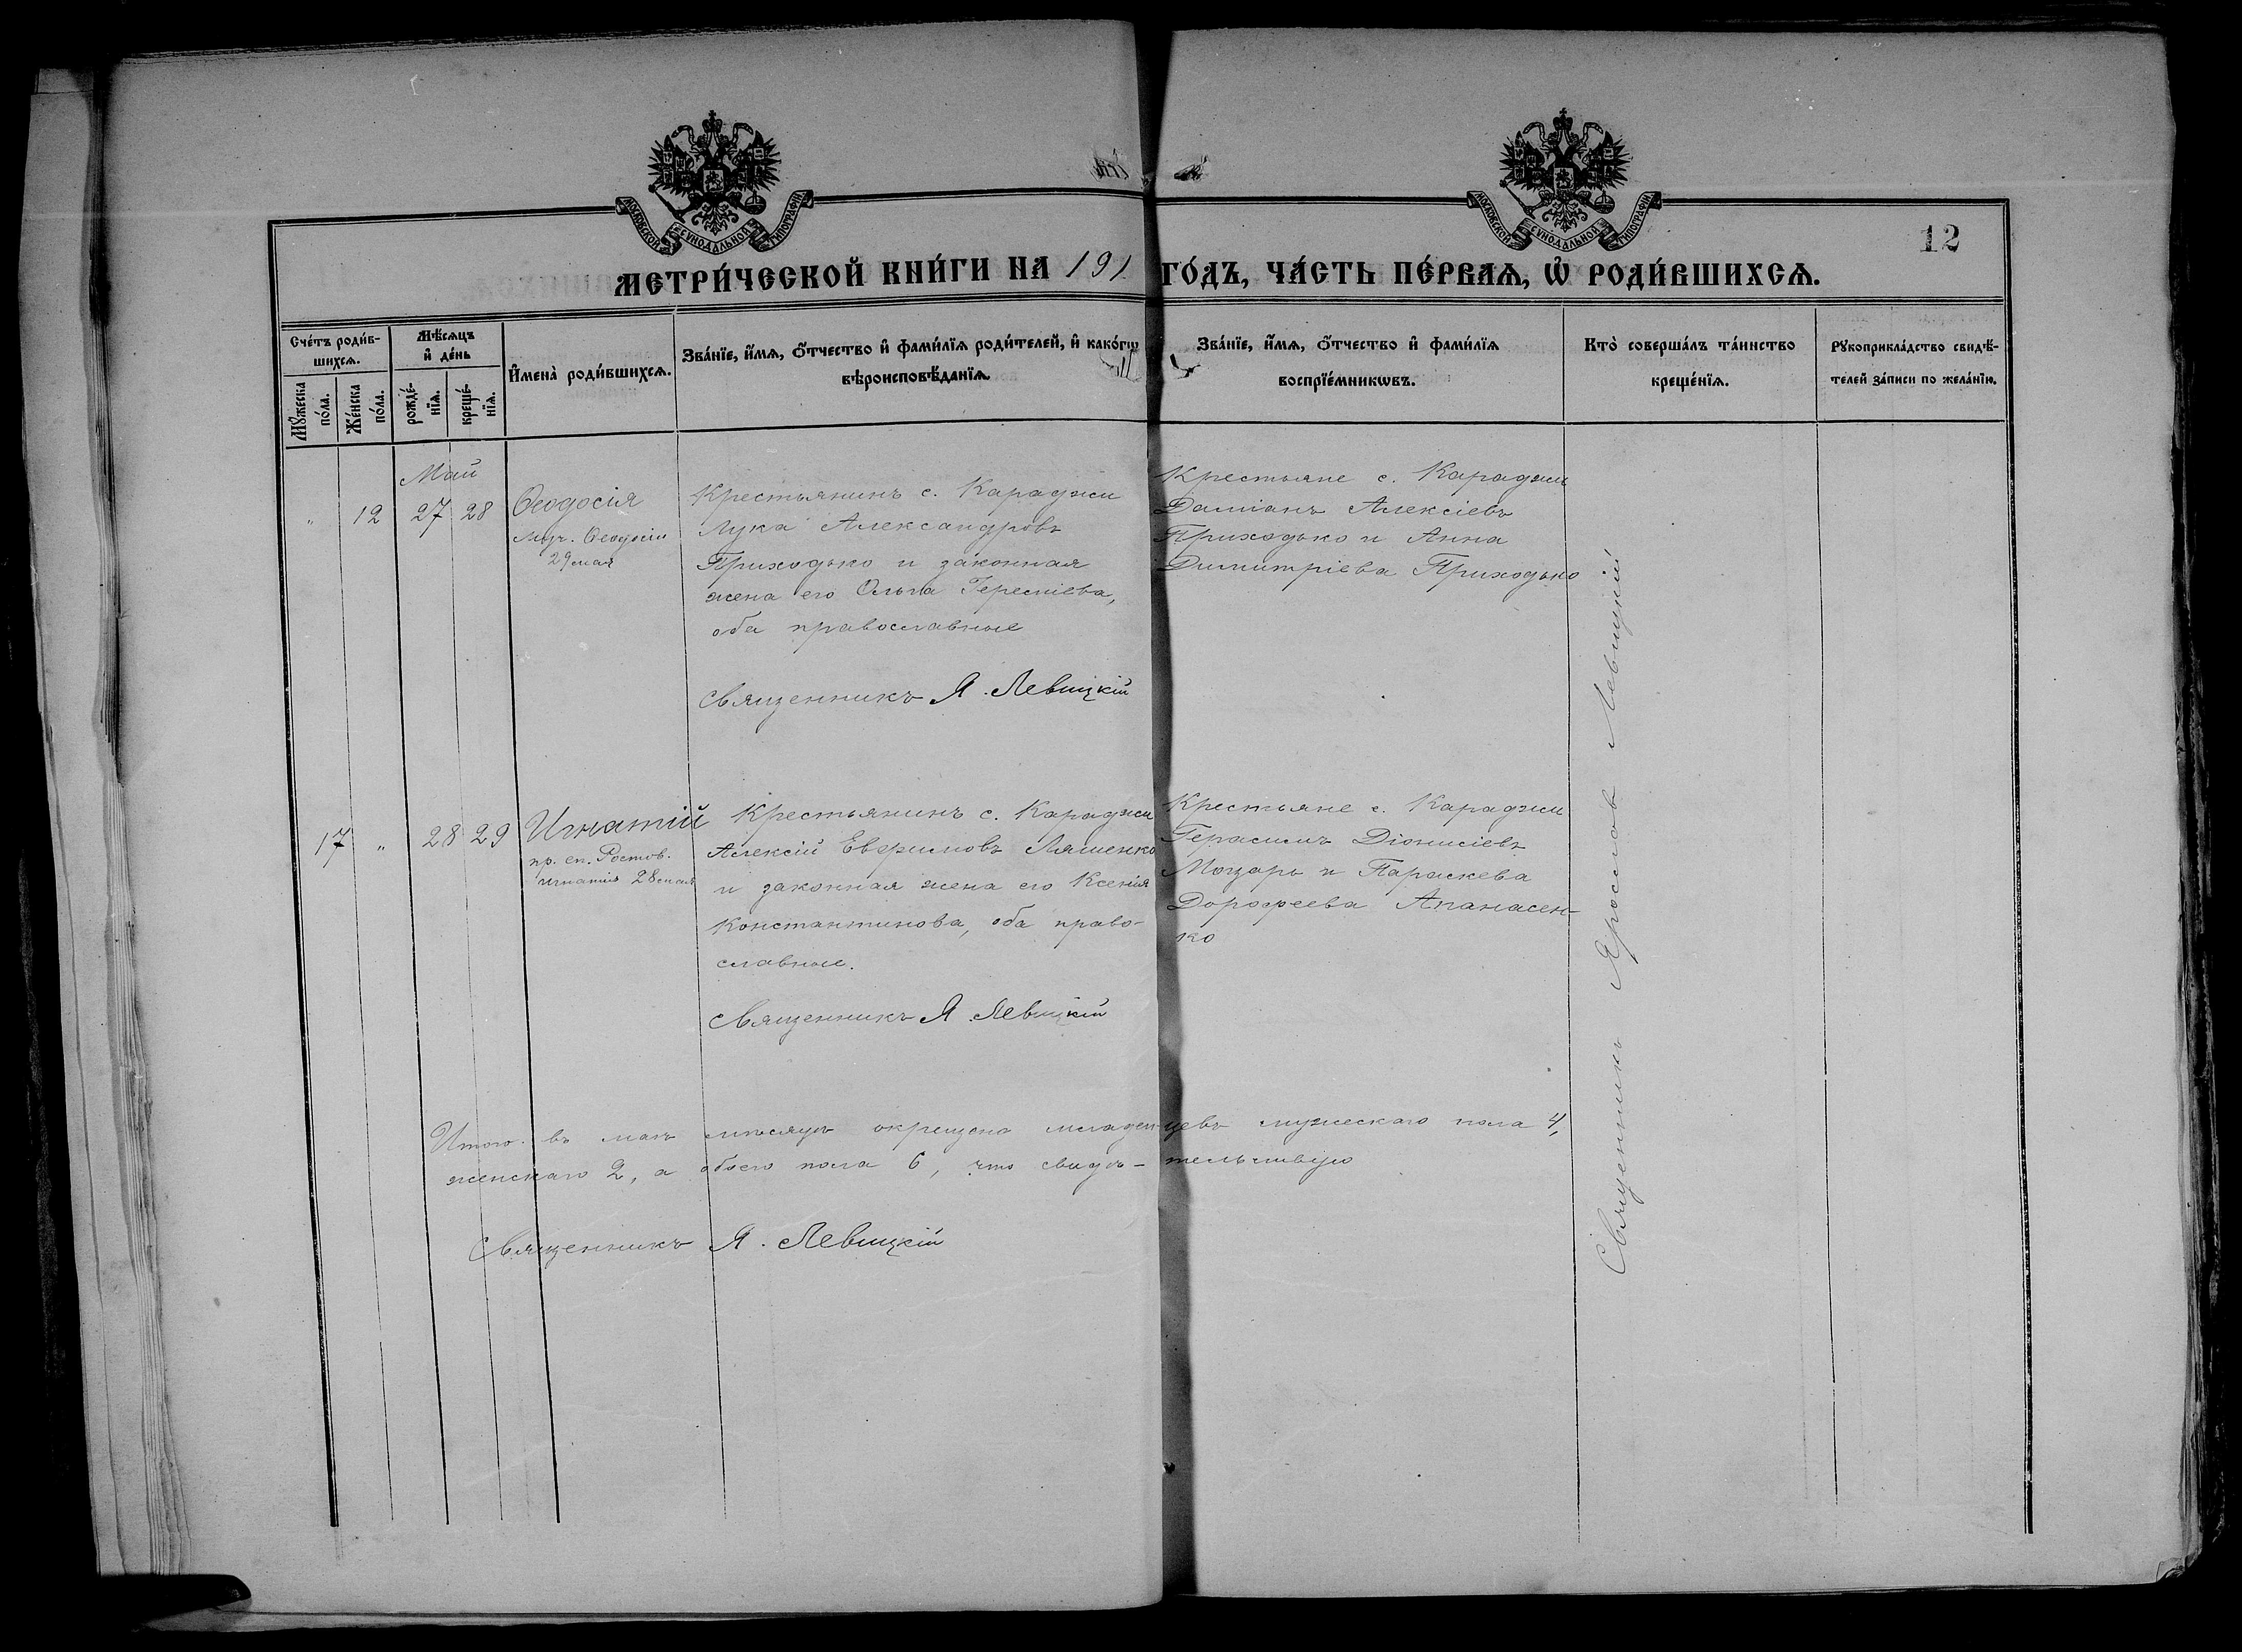 МОСКОВСКОЙ СѴНОДАЛЬНОЙ ТИПОГРАФІИ
МОСКОВСКОЙ СѴНОДАЛЬНОЙ ТИПОГРАФІИ
12
МЕТРИ́ЧЕСКОЙ КНИ́ГИ НА 191 ГО́ДЪ, ЧА́СТЬ ПЕ́РВАѦ, Ѡ҆ РОДИ́ВШИХСѦ.
Сче́тъ роди́в-
шихсѧ.
Мꙋ́жеска по́ла.
Же́нска по́ла.
Мѣ́сѧцъ
и҆ де́нь
рожде́-
нїѧ.
креще́-
нїѧ.
И҆мена̀ роди́вшихсѧ.
Зва́нїе, и҆́мѧ, о҆́тчество и҆ фами́лїѧ роди́телей, и҆ како́гѡ
вѣроисповѣ́данїѧ.
Зва́нїе, и҆́мѧ, о҆́тчество и҆ фами́лїѧ
воспрїе́мникѡвъ.
Кто̀ соверша́лъ та́инство
креще́нїѧ.
Рꙋкоприкла́дство свидѣ́-
телей за́писи по жела́нїю.
Май
" 12 27 28
Ѳеодосія
муч. Ѳеодосіи
29 мая
Крестьянинъ с. Караджи
Лука Александровъ
Приходько и законная
жена его Ольга
оба православные
Священникъ Я. Левицкій
Крестьяне с. Караджи
Даміанъ Алексіевъ
Приходько и Анна
Димитріева Приходько
17 " 28 29
Игнатій
пр. еп. Ростов.
Игнатія 28 мая
Крестьянинъ с. Караджи
Алексій Евѳимовъ Ляшенко
и законная жена его Ксенія
Константинова, оба право-
славные.
Священникъ Я. Левицкій
Крестьяне с. Караджи
Герасимъ Діонисіевъ
Моцарь и Параскева
Дороѳеева Апанасен-
ко
Священникъ Ярослав Левицкій
Итого въ маѣ мѣсяцѣ окрещено младенцевъ мужескаго пола 4,
женскаго 2, а обоего пола 6, что свидѣ-тельствую
Священникъ Я. Левицкій